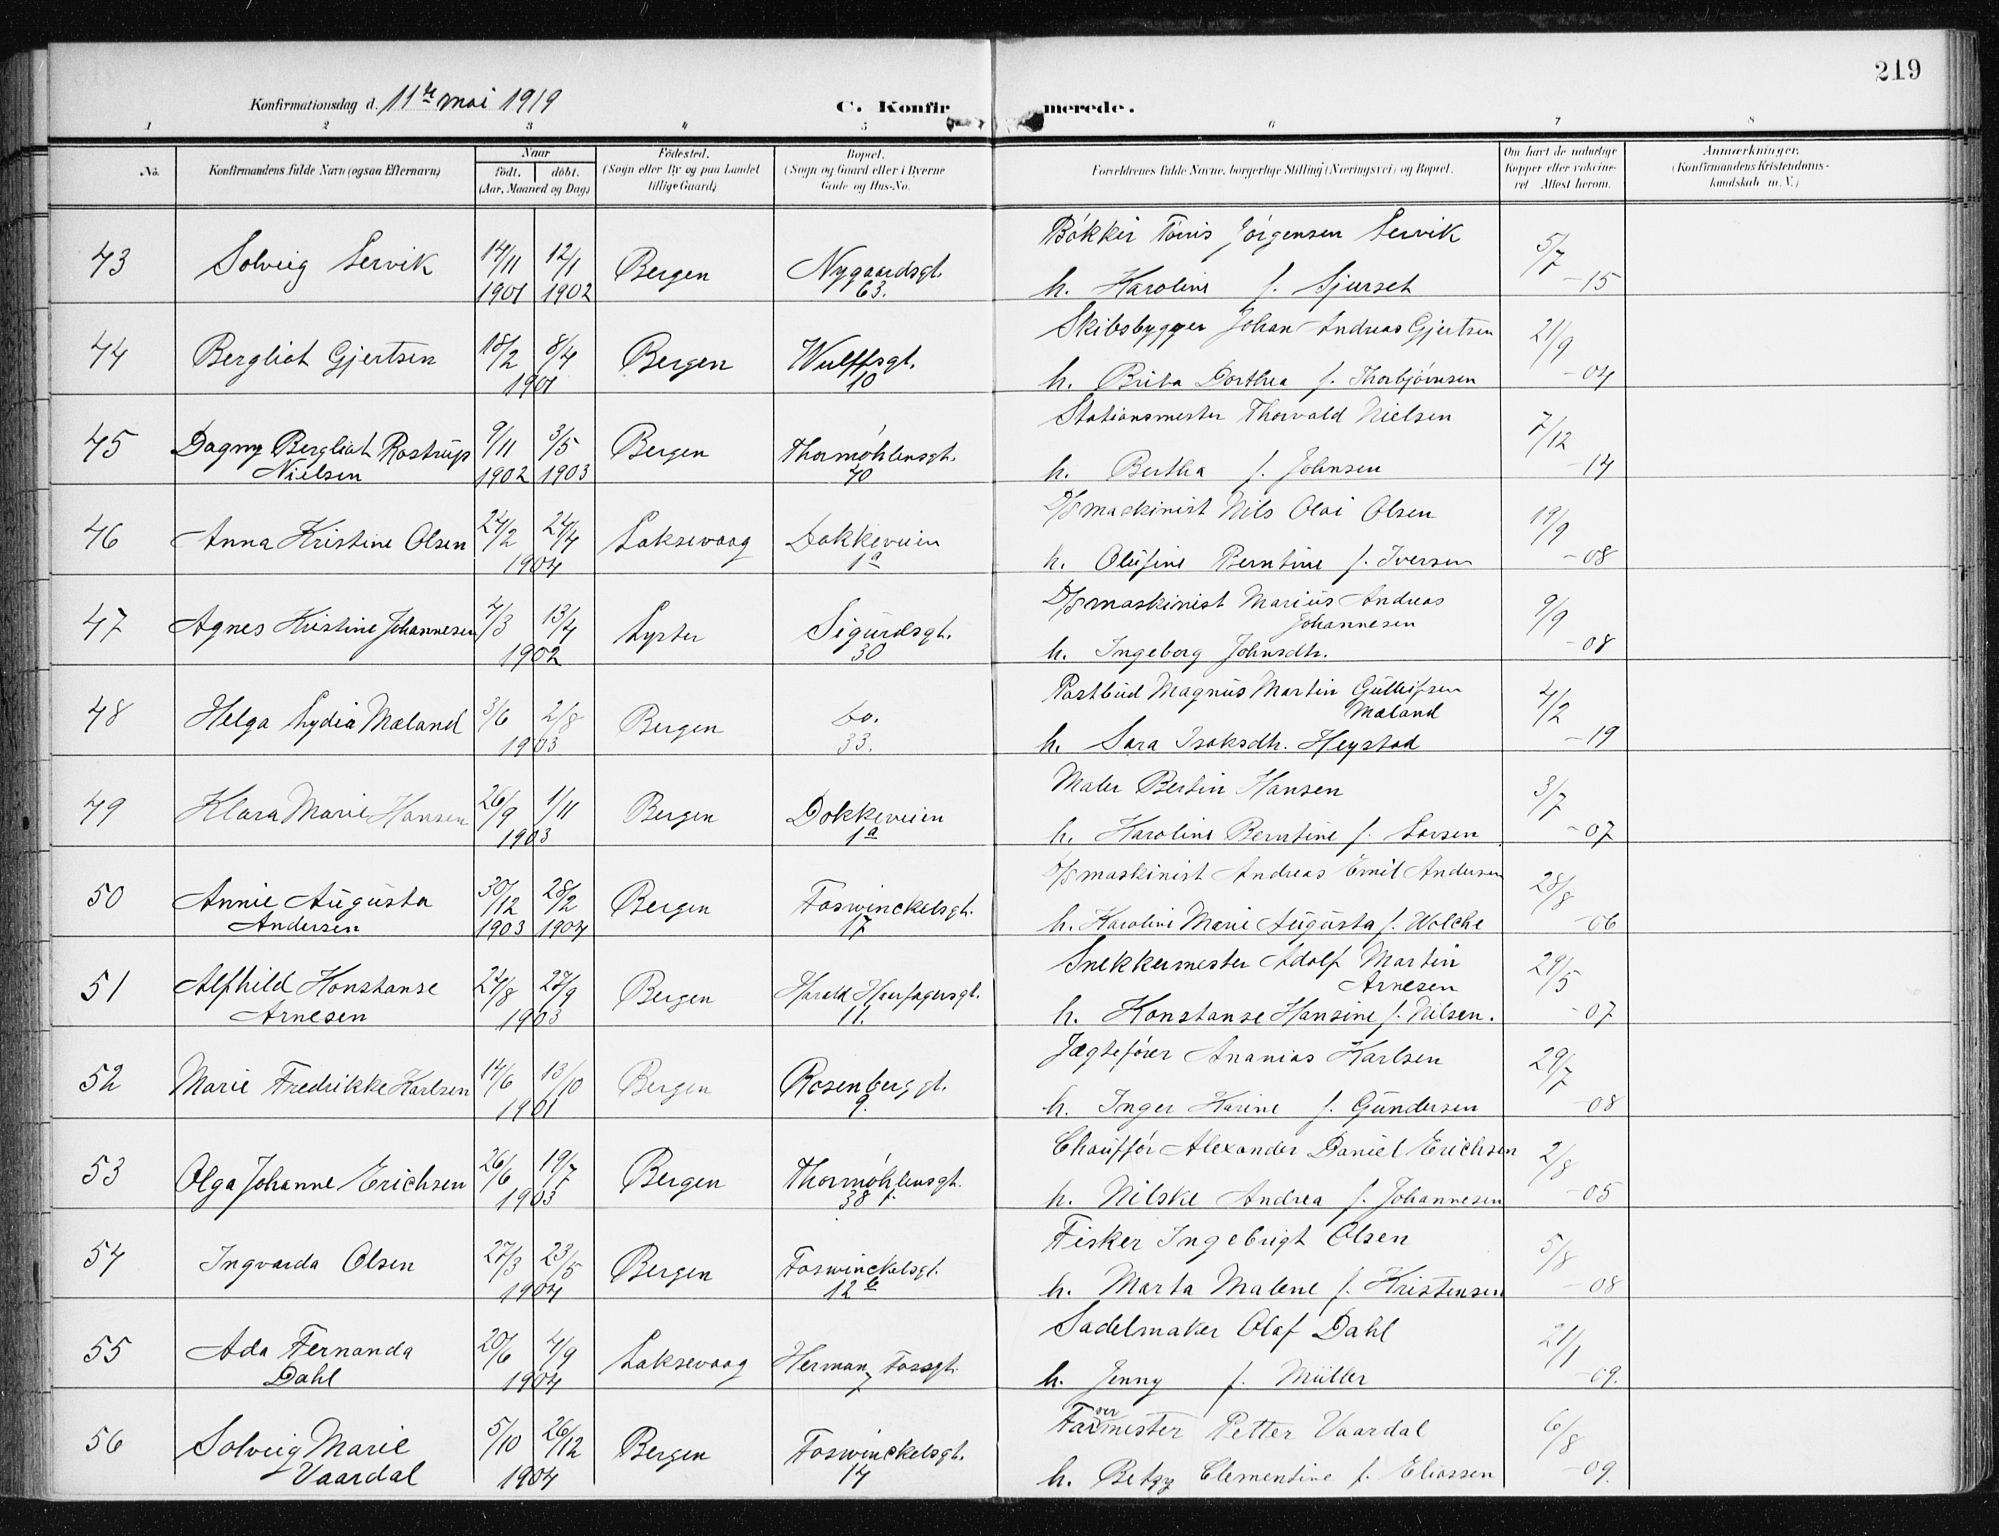 219
Konfirmationsdag d. 11te mai 1919 C. Konfirmerede.
1 2 3 4 5 6 7 8
No. Konfirmandens fulde Navn (ogsaa Efternavn) Naar født. døbt. (Aar, Maaned og Dag) Fødested. (Sogn eller By og paa Landet tillige Gaard) Bopæl. (Sogn og Gaard eller i Byerne Gade og Hus-No. Forældrenes fulde Navne, borgerlige Stilling (Næringsvei) og Bopæl. Om havt de naturlige Kopper eller vakcineret. Attest herom. Anmærkninger. (Konfirmandens Kristendomskundskab m. V.)
Bøkker Tønis Jørgensen Servik
43 Solveig Servik 14/11 1901 12/1 1902 Bergen Nygaardsgt. 63. 5/7 -15
h. Karoline f. Sjurset
Skibsbygger Johan Andreas Gjertsen
44 Bergliot Gjertsen 18/2 8/4 1901 Bergen Wulffsgt. 10 21/9 -04
h. Brita Dorthea f. Thorbjørnsen
Stationsmester Thorvald Nielsen
45 Dagny Bergliot Rostrup Nielsen 9/11 1902 3/5 1903 Bergen Thormøhlensgt. 40 7/12 -14
h. Bertha f. Johnsen
D/S maskinist Nils Olai Olsen
46 Anna Kristine Olsen 24/2 24/4 1904 Laksevaag Dokkeveien 1a 19/9 -08
h. Olufine Berntine f. Iversen
D/S maskinist Marius Andreas Johannesen
47 Agnes Kristine Johannesen 4/3 13/4 1902 Lyster Sigurdsgt. 30 9/9 -08
h. Ingeborg Johnsdtr.
Postbud Magnus Martin Gulleifsen Mæland
48 Helga Lydia Mæland 3/6 2/8 1903 Bergen do. 33. 4/2 -19
h. Sara Isaksdtr. Heystad
Maler Bertin Hansen
49 Klara Marie Hansen 26/9 1/11 1903 Bergen Dokkeveien 1a 3/7 -07
h. Karoline Berntine f. Larsen
D/S maskinist Andreas Emil Andersen
50 Annie Augusta Andersen 30/12 1903 28/2 1904 Bergen Fosswinckelsgt. 17 28/8 -06
h. Karoline Marie Augusta f. Wolche
Snekkermester Adolf Martin Arnesen
51 Alfhild Konstanse Arnesen 24/8 27/9 1903 Bergen Harald Haarfagersgt. 11. 29/5 -07
h. Konstanse Hansine f. Nilsen.
Jægtefører Ananias Karlsen
52 Marie Fredrikke Karlsen 14/6 13/10 1901 Bergen Rosenberggt. 9. 29/7 -08
h. Inger Karine f. Gundersen
Chauffør Alexander Daniel Erichsen
53 Olga Johanne Erichsen 26/6 19/7 1903 Bergen Thormøhlensgt. 38 2/8 -05
h. Nilske Andrea f. Johannesen
Fisker Ingebrigt Olsen
54 Ingvarda Olsen 27/3 23/5 1904 Bergen Foswinckelsgt. 12 b 5/8 -08
h. Marta Malene f. Kristensen
Sadelmaker Olaf Dahl
55 Ada Fernanda Dahl 20/6 4/9 1904 Laksevaag Herman Fossgt. 7 21/1 -09.
h. Jenny f. Müller
Farvermester Petter Vaardal
56 Solveig Marie Vaardal 5/10 26/12 1904 Bergen Foswinckelsgt. 14 6/8 -09.
h. Betzy Clementine f. Eliassen